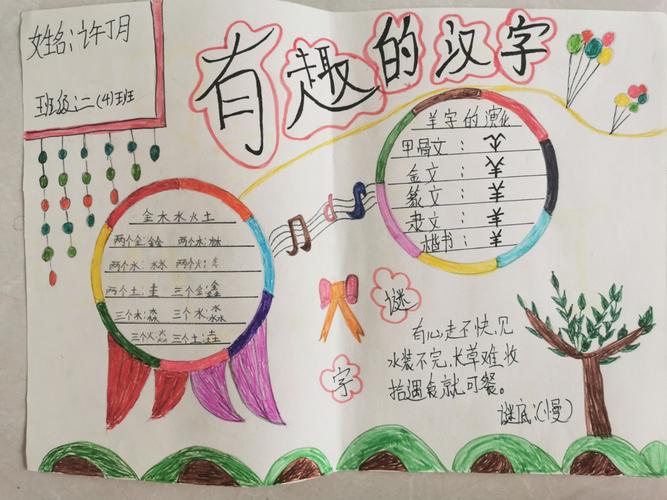 姓名:许丁月
班级:二(4)班
有趣的汉字
羊字的演化
甲骨文:
金文:
篆文:羊
隶文:羊
楷书:羊
金木水火土
两个金:鍂 两个木:林
两个水:沝 两个火:炎
两个土:圭 三个金:鑫
三个木:森 三个水:淼
三个火:焱 三个土:垚
谜
字
有心走不快,见
水装不完,长草难收
拾遇食就可餐。
谜底:(慢)